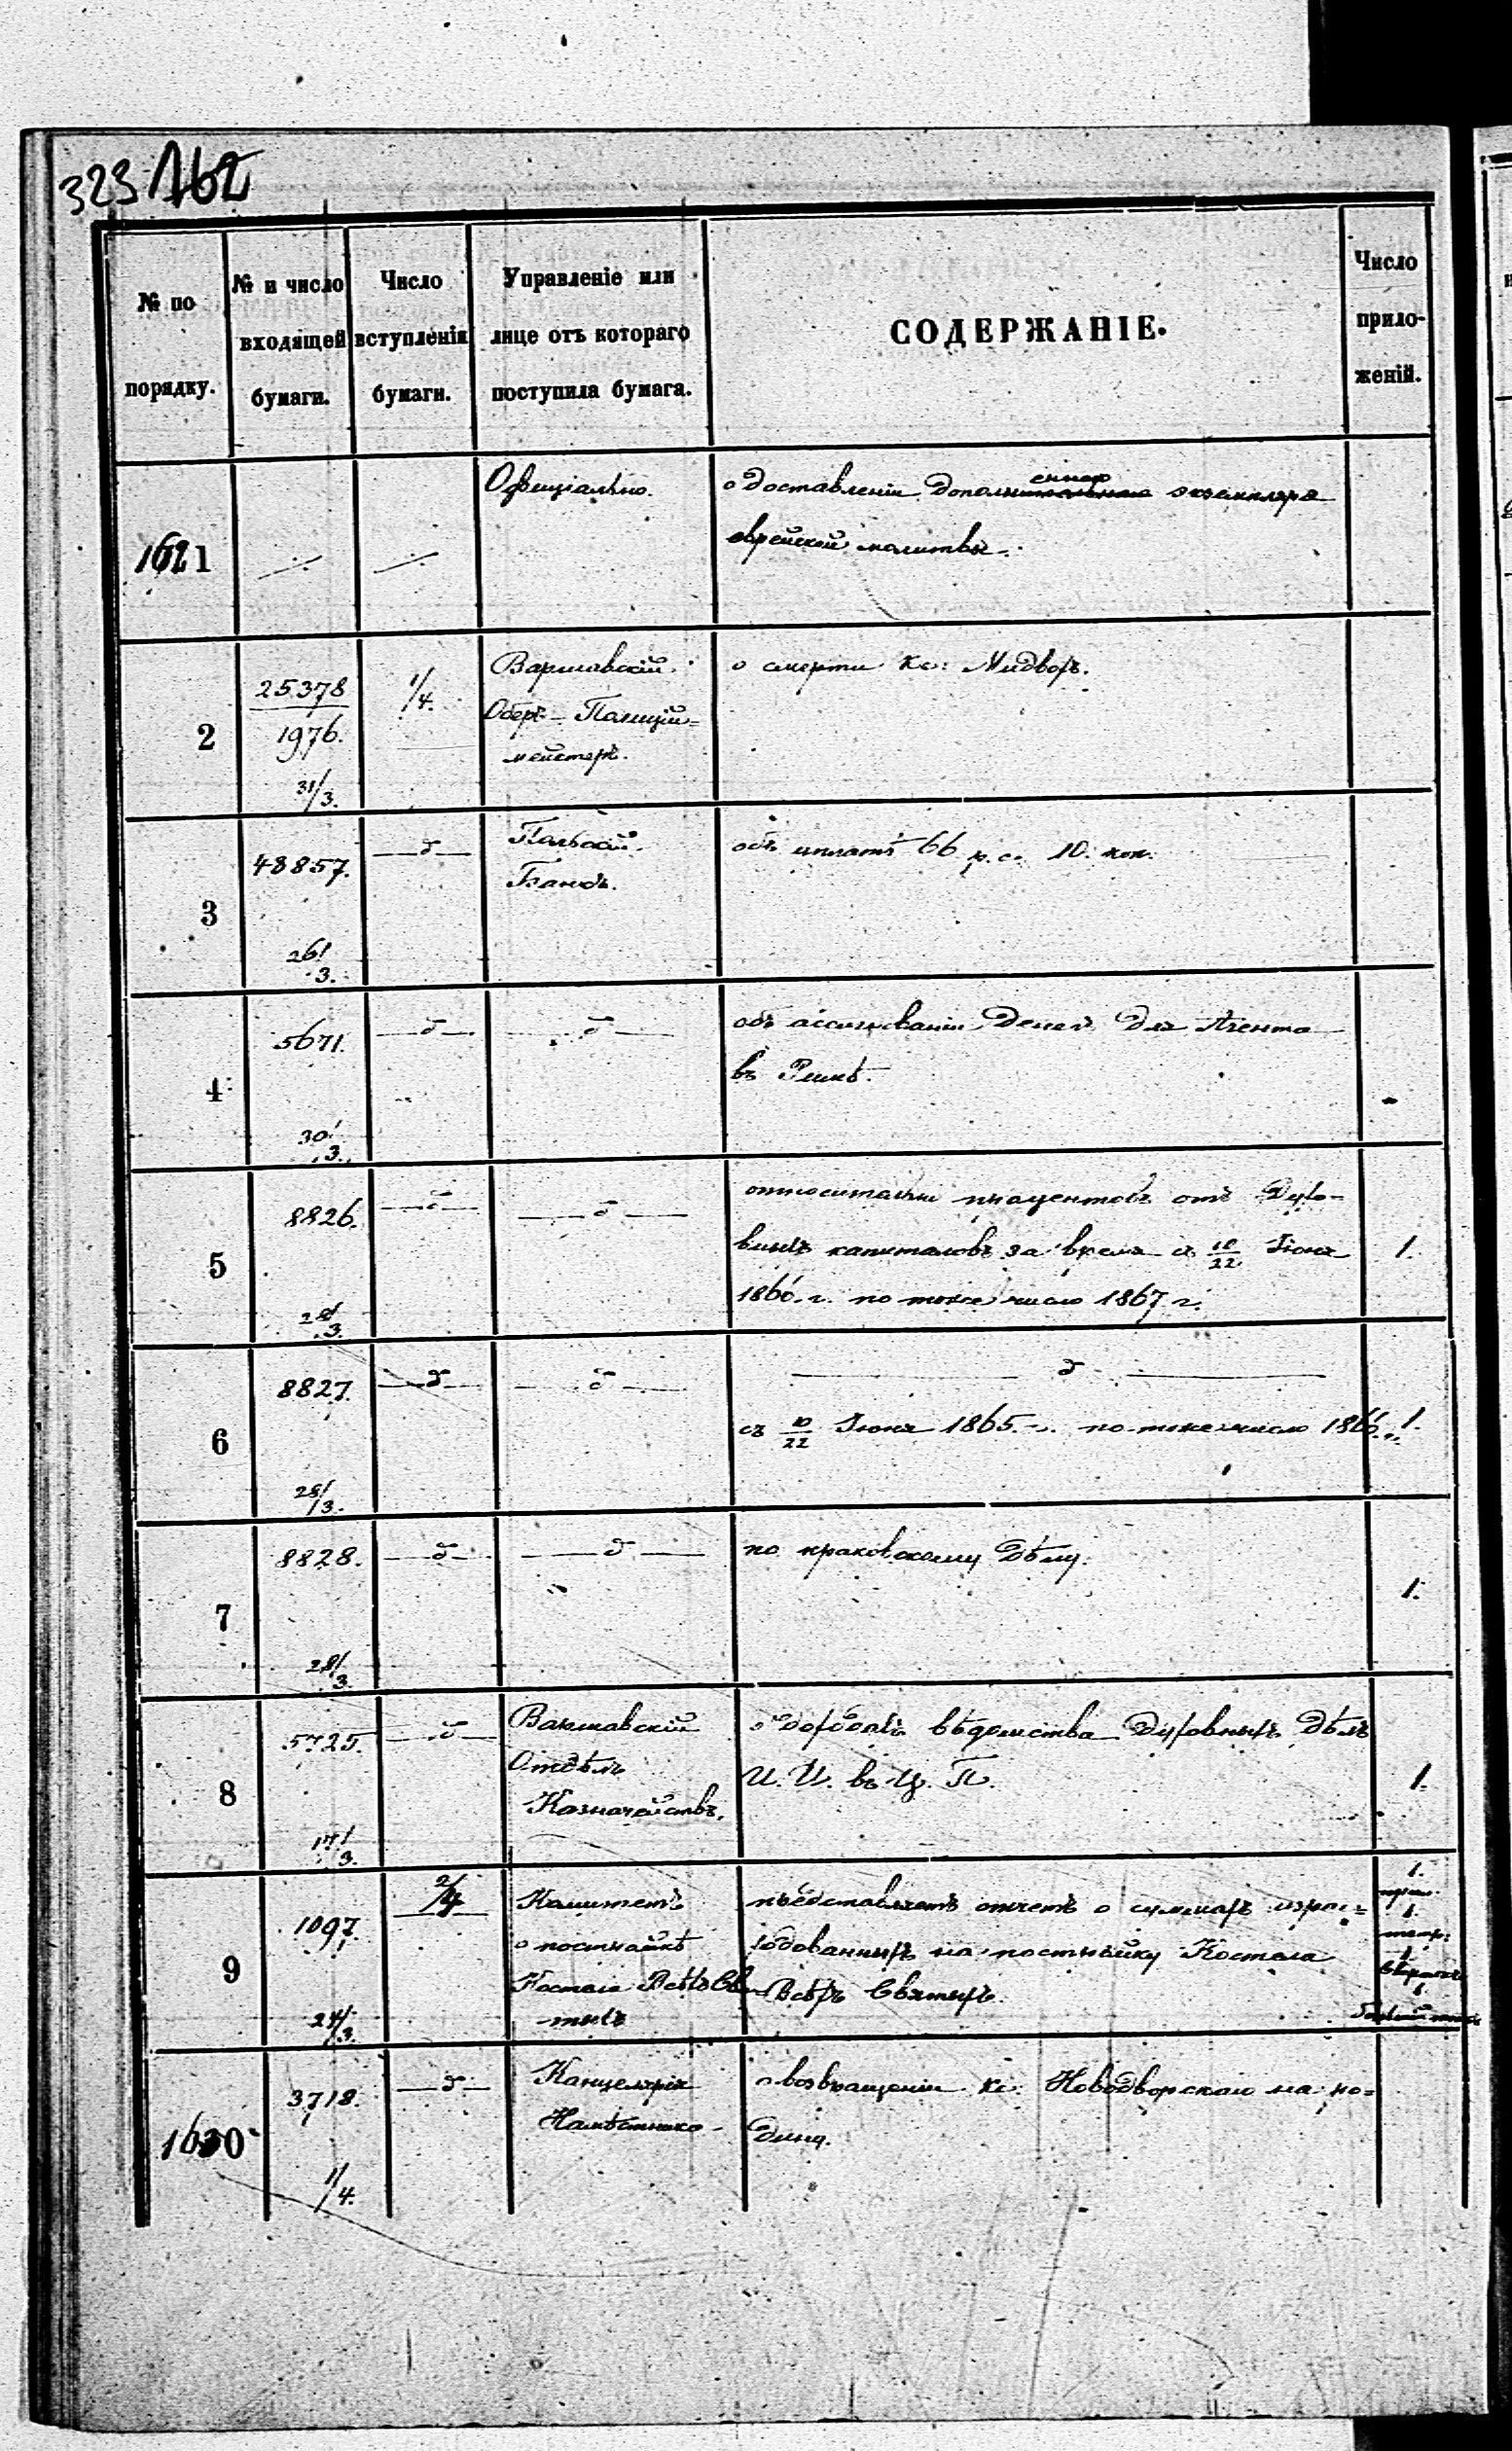 323 162
№ по порядку.
№ и число входящей бумаги.
Число вступленія бумаги.
Управленіе или лице отъ котораго поступила бумага.
СОДЕРЖАНІЕ.
Число приложеній.
1621
Офиціально.
о доставленіи дополни
еврейской молитвы.
2
25378
1976.
31/3.
1/4.
Варшавскій
Оберъ-Полицій=
мейстеръ.
о смерти Кс:
3
48857.
26/3.
—б—
Польскій
Банкъ.
объ уплатѣ 66 р. с. 10. коп.
4
5671.
30/3.
—б—
—б—
объ ассигнованіи денегъ для Агента
въ Римѣ.
5
8826.
28/3.
—б—
—б—
относительно процентовъ отъ Духо-
вныхъ капиталовъ за время съ 10/22 Іюня
1866. г. по тоже число 1867 г.
1.
6
8827.
28/3.
—б—
—б—
—б—
съ 10/22 Іюня 1865. г. по тоже число 1866.
1.
7
8828.
28/3.
—б—
—б—
по краковскому дѣлу.
1.
8
5725.
17/3.
—б—
Варшавскій
Отдѣлъ
Казначействъ.
о доходахъ вѣдомства Духовныхъ дѣлъ
И. И. въ Ц. П.
1.
9
1097.
24/3.
2/4
Комитетъ
о постройкѣ
Костела Всѣхъ Свя
тыхъ
представляетъ отчетъ о суммахъ израс=
ходованныхъ на постройку Костела
Всѣхъ Святыхъ.
1.
1.
1.
1.
1630
3718.
1/4.
—б—
Канцелярія
Намѣстника
о возвращеніи Кс: Новодворскаго на ро=
дину.